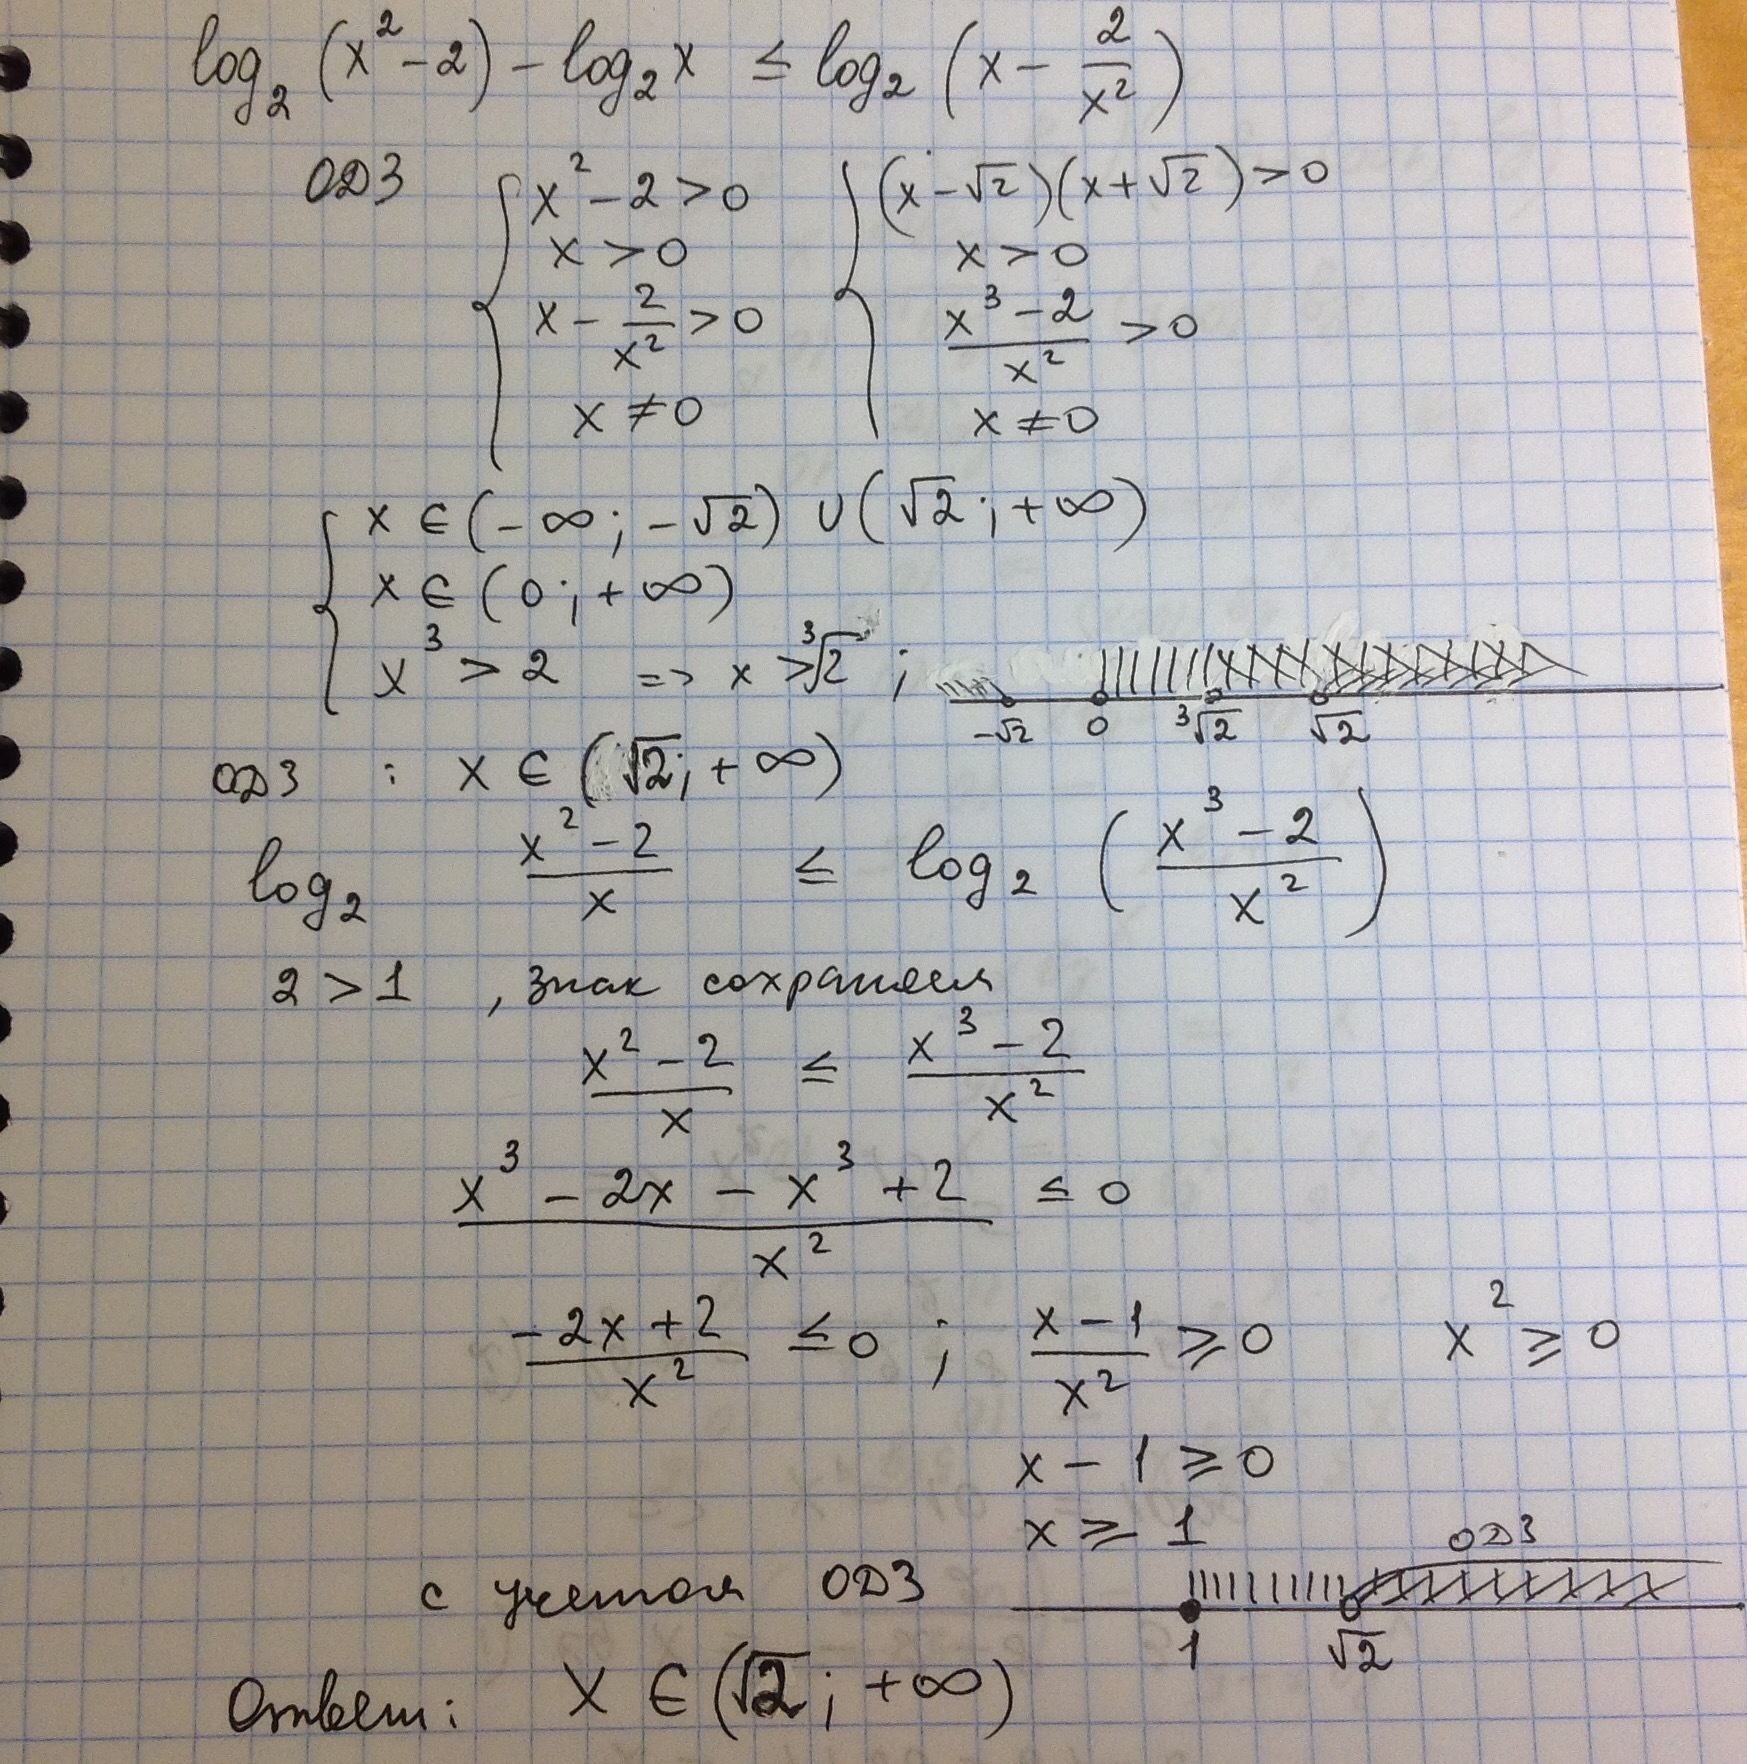 log₂ (x² − 2) − log₂ x ≤ log₂ (x − 2/x²)
ОДЗ { x² − 2 > 0 { (x − √2)(x + √2) > 0
x > 0 x > 0
x − 2/x² > 0 (x³ − 2)/x² > 0
x ≠ 0 x ≠ 0
{ x ∈ (−∞; −√2) ∪ (√2; +∞)
x ∈ (0; +∞)
x³ > 2 => x > ³√2 ;
−√2 0 ³√2 √2
ОДЗ : x ∈ (√2; +∞)
log₂ (x² − 2)/x ≤ log₂ ((x³ − 2)/x²)
2 > 1 , знак сохраняем
(x² − 2)/x ≤ (x³ − 2)/x²
(x³ − 2x − x³ + 2)/x² ≤ 0
(−2x + 2)/x² ≤ 0 ; (x − 1)/x² ≥ 0 x² ≥ 0
x − 1 ≥ 0
x ≥ 1
ОДЗ
с учетом ОДЗ
1 √2
Ответ: x ∈ (√2; +∞)